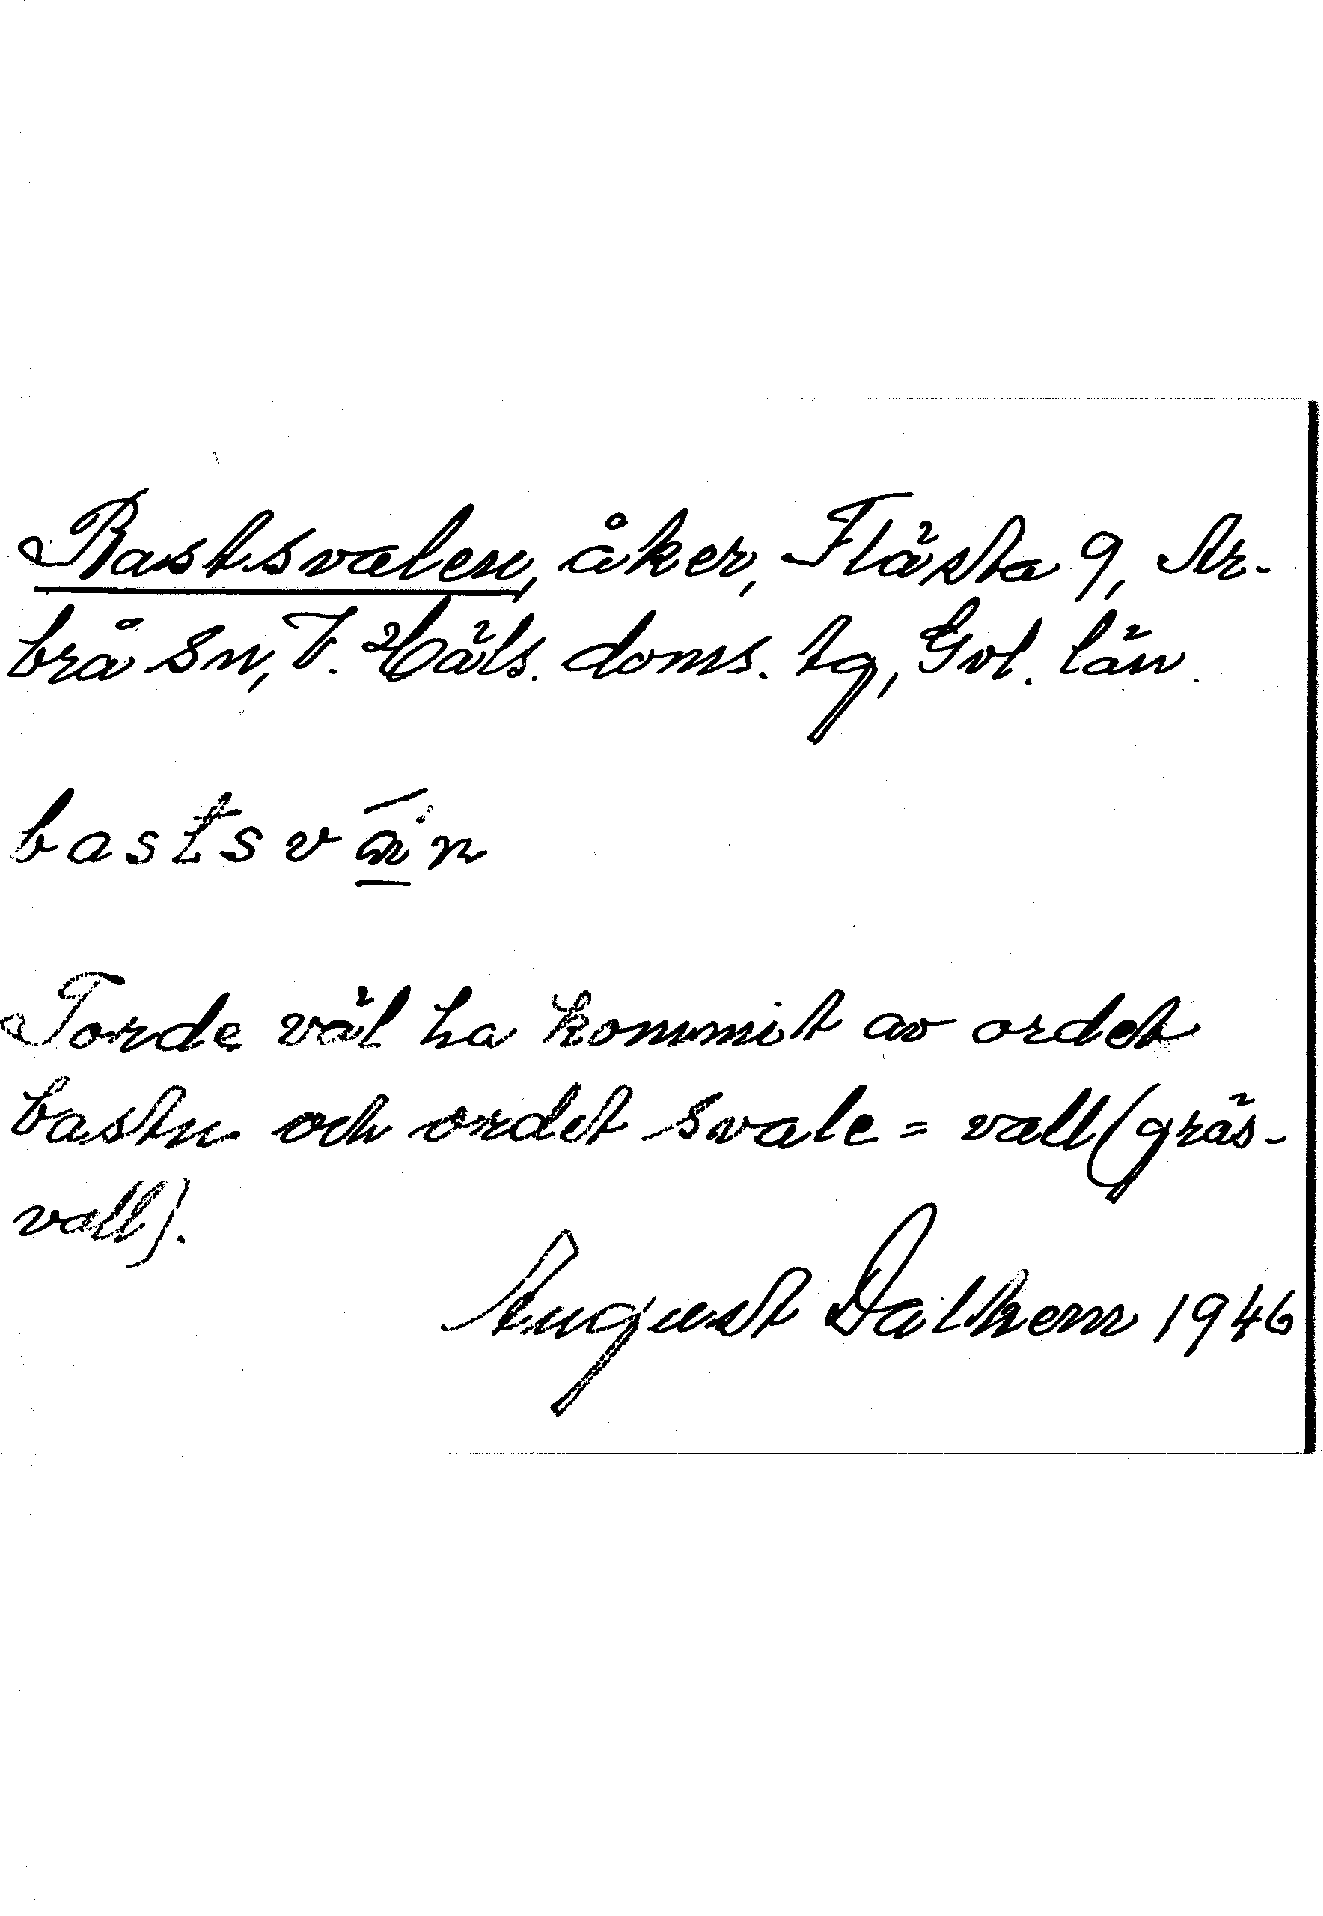 Bastsvalen, åker, Flästa 9, Ar-
brå Sn, V. Häls. doms. tg, Gvl. län.
Torde väl ha kommit av ordet
bastu och ordet svale = vall (gräs-
vall).
August Dalhem 1946